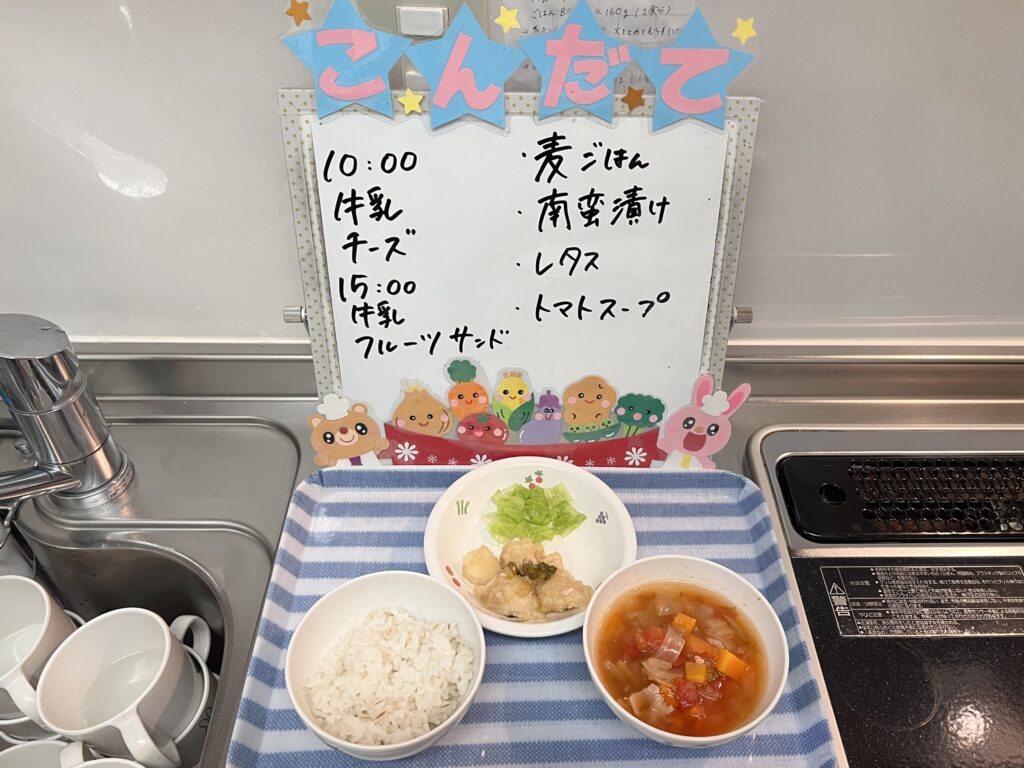 こんだて
10:00
牛乳
チーズ
15:00
牛乳
フルーツサンド
・麦ごはん
・南蛮漬け
・レタス
・トマトスープ